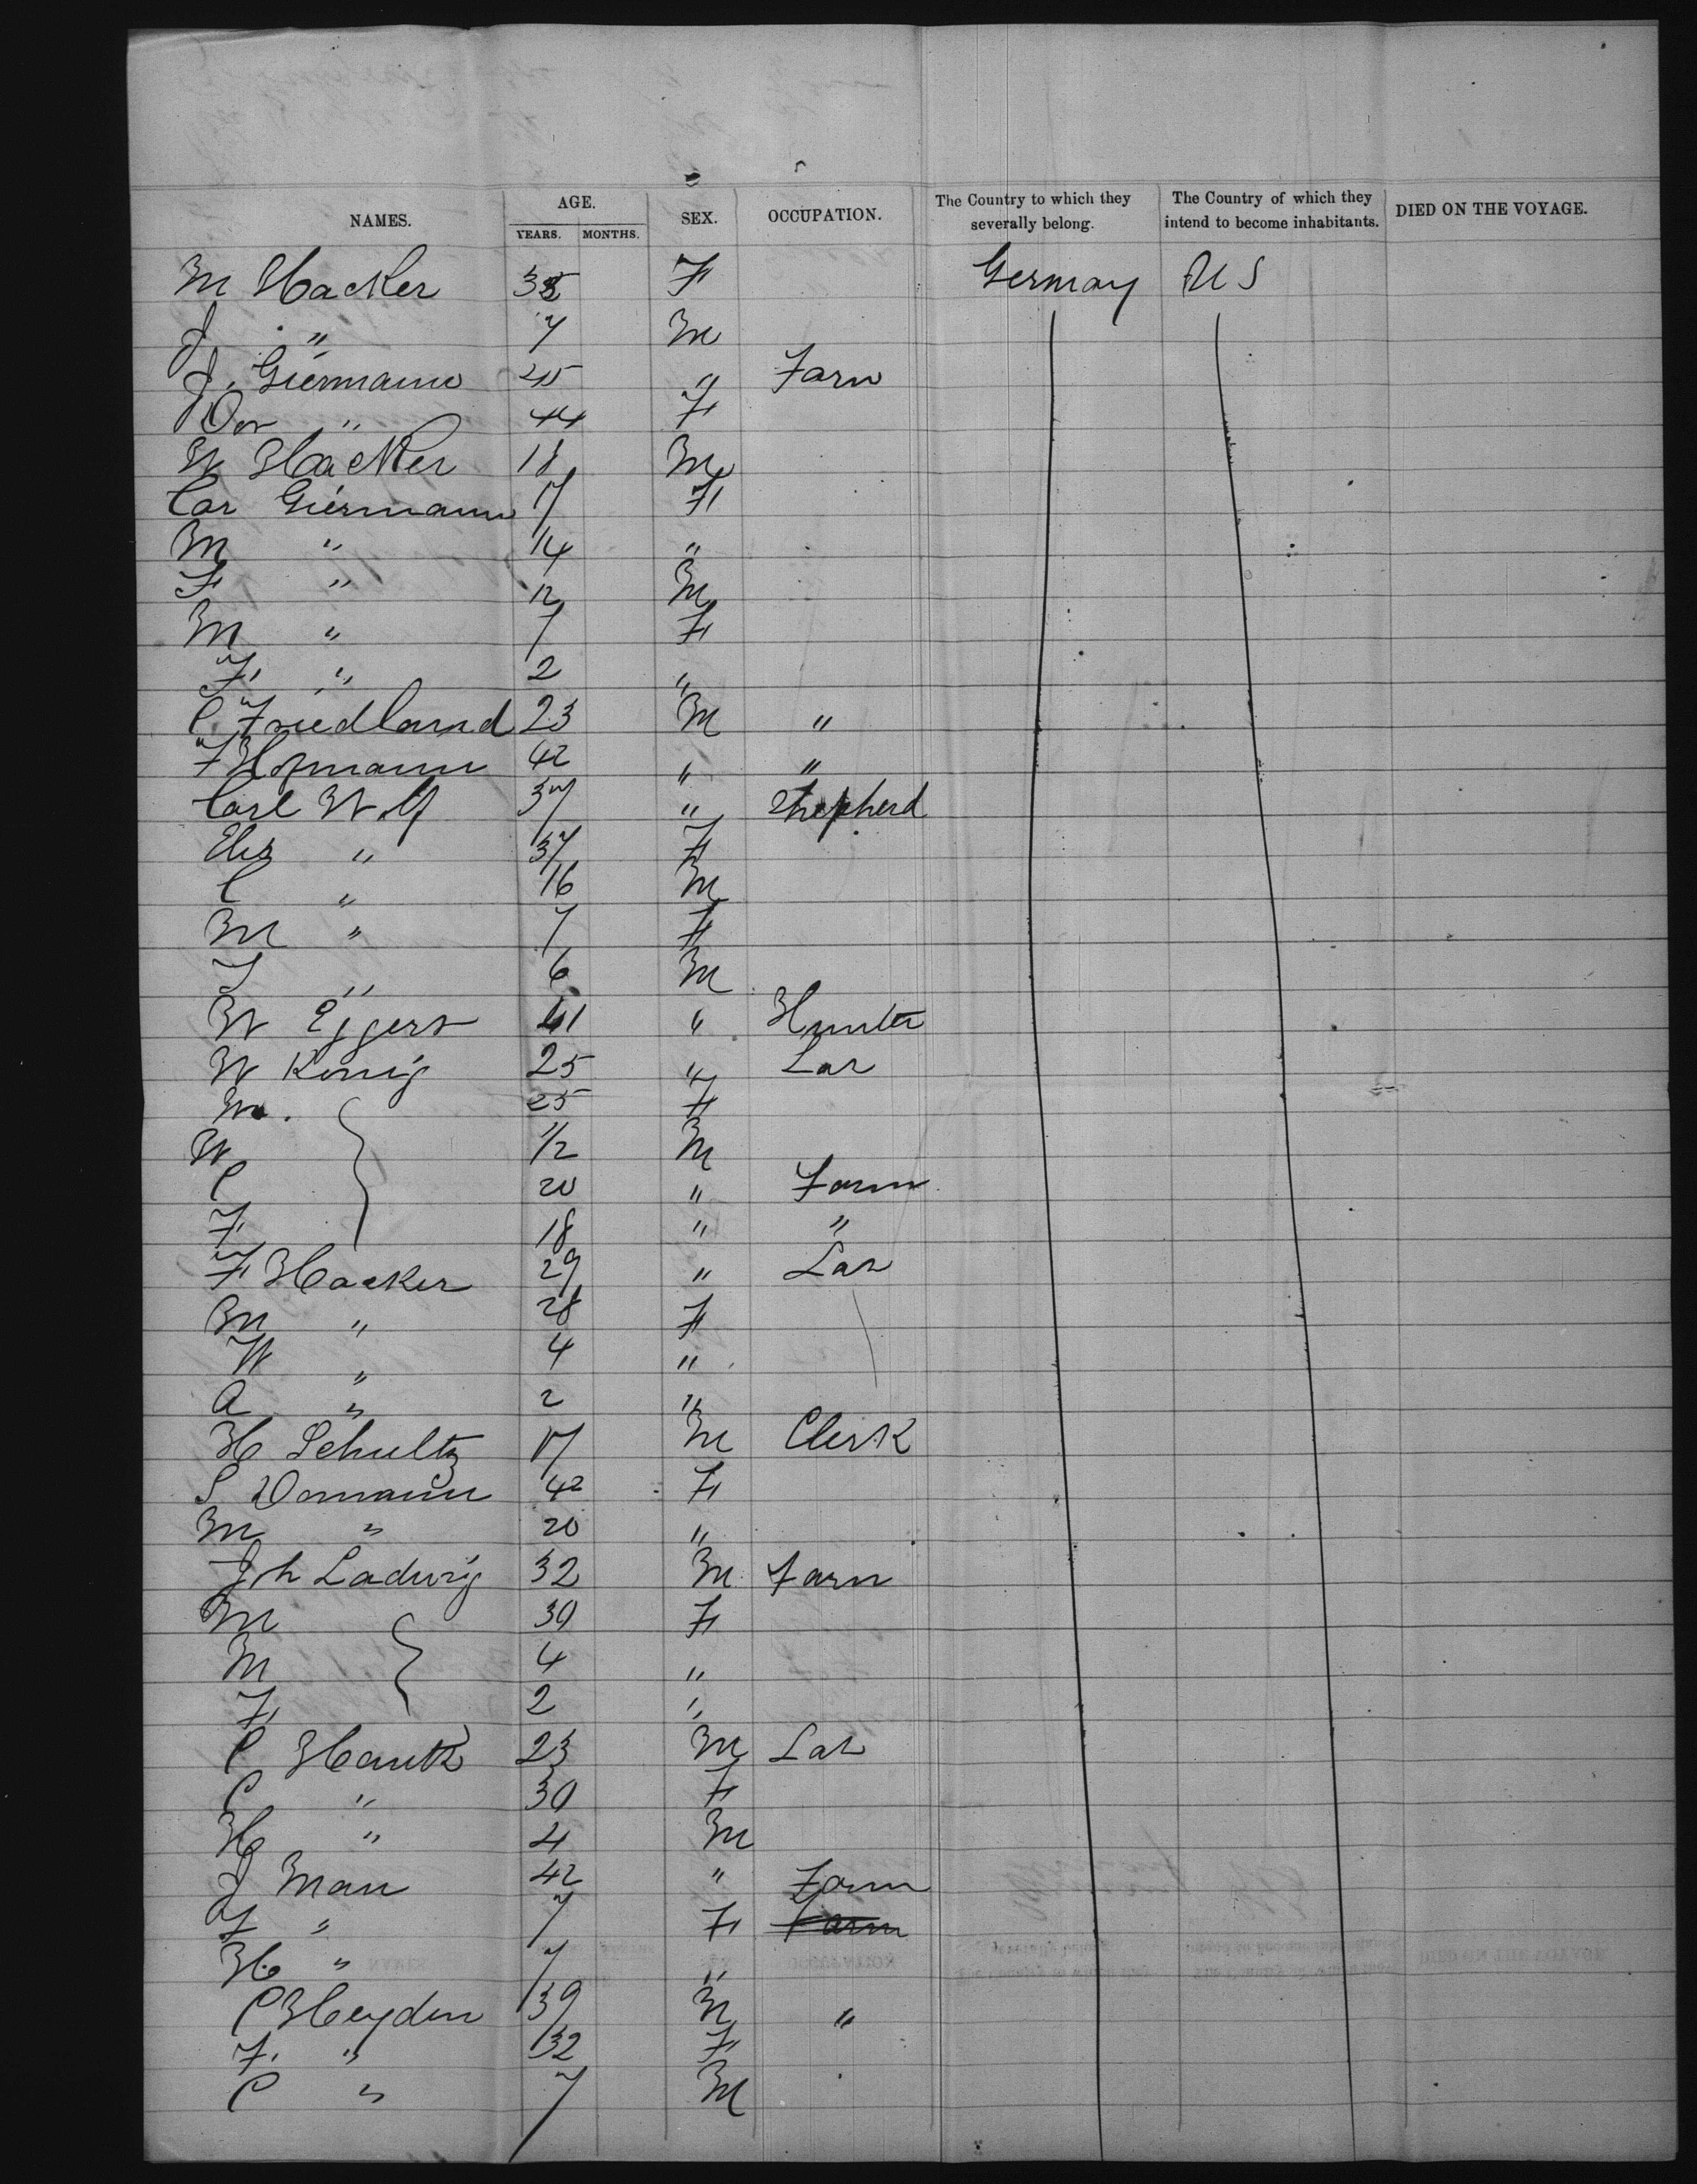 NAMES. AGE. SEX. OCCUPATION. The Country to which they severally belong. The Country of which they intend to become inhabitants. DIED ON THE VOYAGE.
YEARS. MONTHS.
M Hacker 35 F Germay U S
J " 7 M
J. Giermann 45 " Farm
Dor " 44 F
W Hacker 18 M
Car Giermann 17 F
M " 14 "
F " 12 M
M " 7 F
F " 2 "
C Friedland 23 M "
F Hofmann 42 " "
Carl Wolf 37 " Shepherd
Elis " 37 F
C " 16 M
M " 7 F
J " 6 M
W Eggers 41 " Hunter
W König 25 " Lar
M. 25 F
W 1/2 M
C 20 " Farm
F 18 " "
F Hacker 29 " Lar
M " 28 F
W " 4 "
A " 2 "
H Schultz 17 M Clerk
S Domann 42 F
M " 20 "
Joh Ladwig 32 M farm
M 30 F
M 4 "
F 2 "
C Hauth 23 M Lar
C " 30 F
H " 4 M
J Man 42 " Farm
F " 7 F Farm
H " 7 "
C Heyden 39 M "
F. " 32 F
C " 7 M